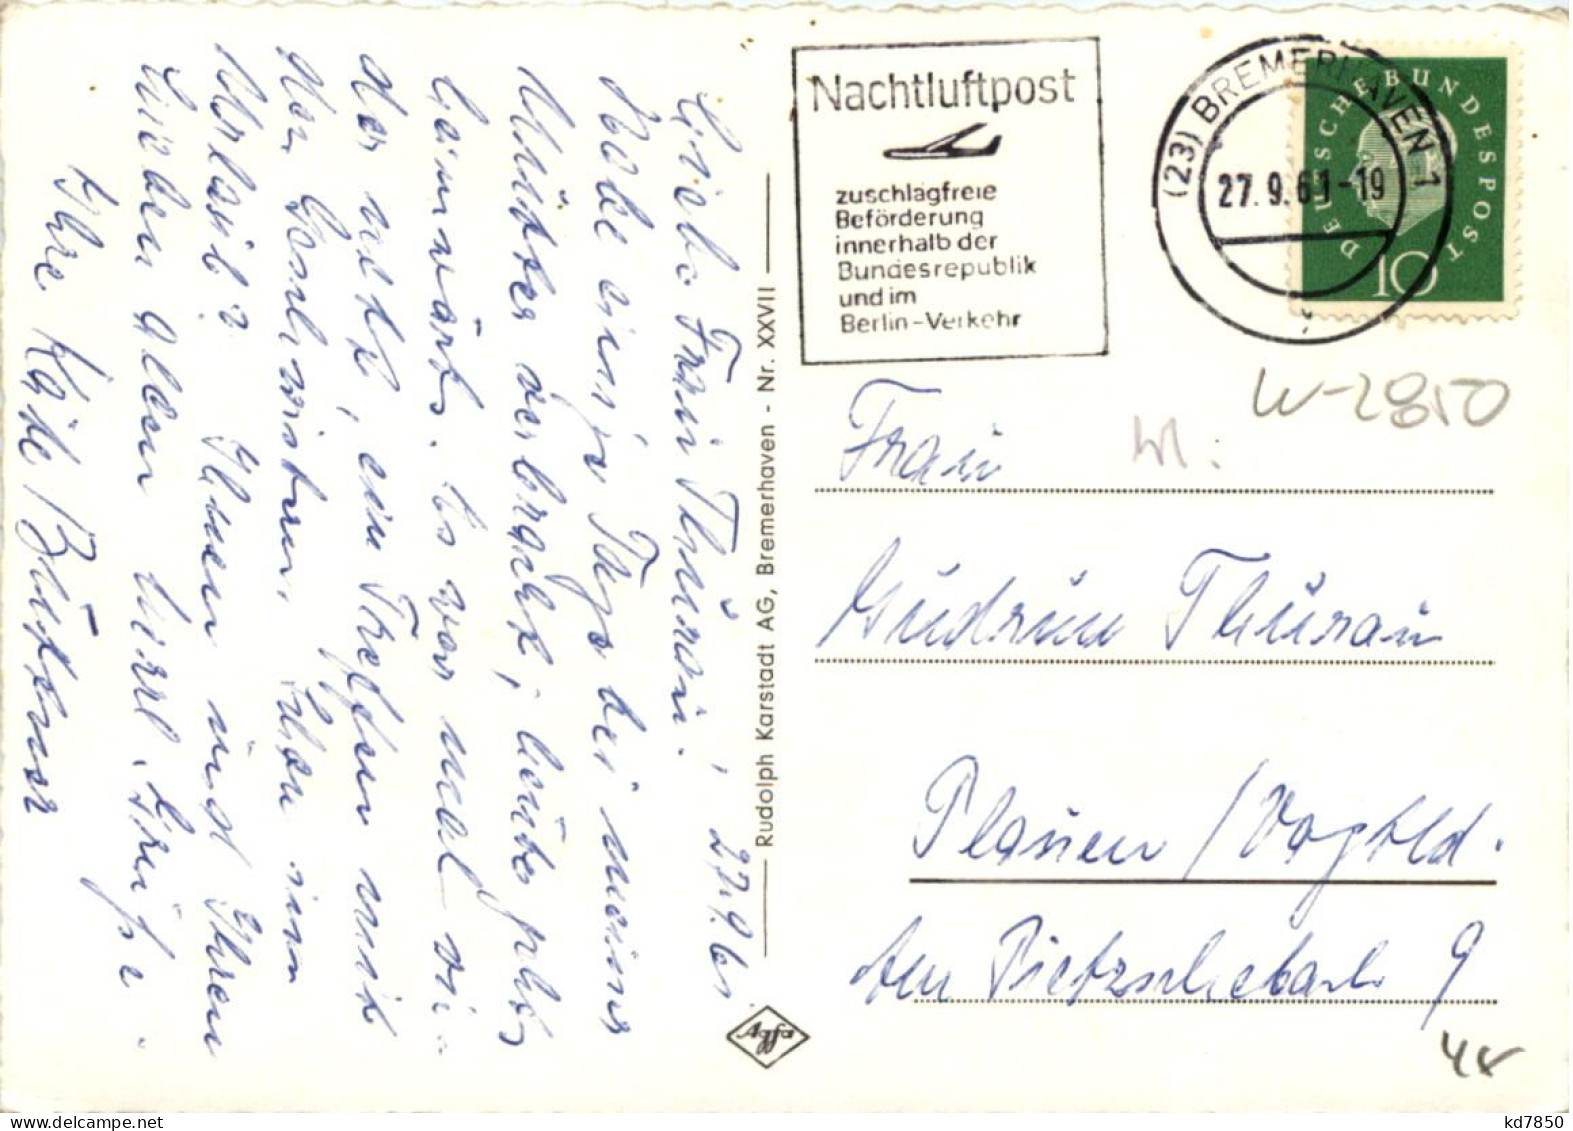 Liebe Frau Thürau! 27.9.61
Habe einige Tage bei meiner
Mutter verbracht, heute geht's
heimwärts. Es war mal wie-
der nett, ein Treffen mit
den Geschwistern. Haben sie
Urlaub? Ihnen und Ihren
Lieben allen herzl. Grüße
Ihre Käte Büttner
Rudolph Karstadt AG, Bremerhaven - Nr. XXVII
Agfa
Nachtluftpost
zuschlagfreie
Beförderung
innerhalb der
Bundesrepublik
und im
Berlin-Verkehr
(23) BREMERHAVEN 1
27.9.61-19
DEUTSCHE BUNDESPOST
10
W-2850
Frau
Gudrun Thürau
Plauen / Vogtld.
Am Pietzschebach 9
kd7850